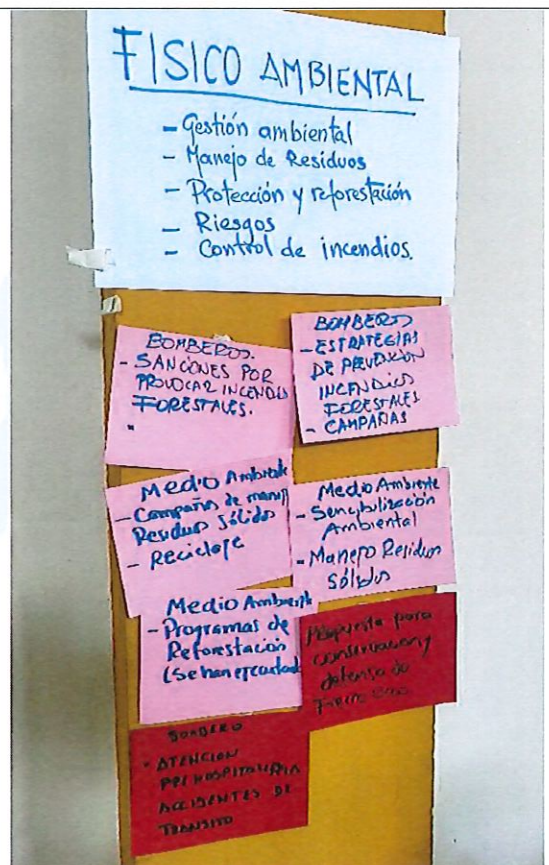 FISICO AMBIENTAL
- Gestión ambiental
- Manejo de Residuos
- Protección y reforestación
- Riesgos
- Control de incendios.
BOMBEROS.
- SANCIONES POR
PROVOCAR INCENDIOS
FORESTALES.
BOMBEROS
- ESTRATEGIAS
DE PREVENCION
INCENDIOS
FORESTALES
- CAMPAÑAS
Medio Ambiente
- Campaña de manejo
Residuos Sólidos
- Reciclaje
Medio Ambiente
- Sencibilización
Ambiental
- Manejo Residuos
Sólidos
Medio Ambiente
- Programas de
Reforestación
(Se han ejecutado
Propuesta para
conservacion y
defensa de
BOMBERO
- ATENCION
PREHOSPITALARIA
ACCIDENTES DE
TRANSITO